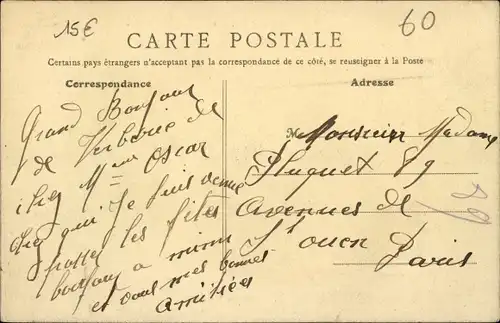 15€
60
CARTE POSTALE
Certains pays étrangers n'acceptant pas la correspondance de ce côté, se renseigner à la Poste
Correspondance
Adresse
Grand Bonjour
de Verberie de
chez Mme Oscar
chez qui Je suis venue
passer les fêtes
bonjour a
et vous mes bonnes
amitiées
M Monsieur Madame
Pluquet 89
avenues de
St ouen
Paris